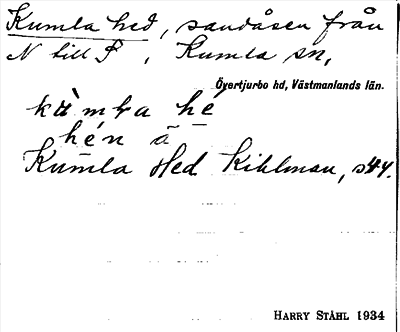 Kumla hed, sandåsen från
N till S, Kumla sn,
Övertjurbo hd, Västmanlands län.
kùmla hé
hén ä
Kumla Hed Kihlman, s 44.
HARRY STÅHL 1934